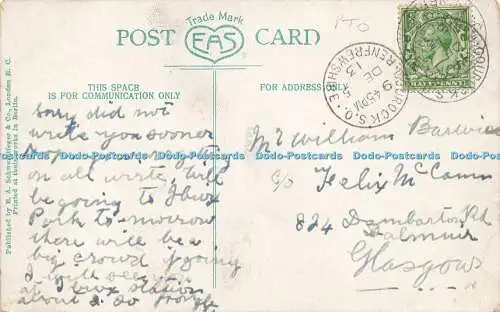 Trade Mark
EAS
POST CARD
PTO
THIS SPACE
IS FOR COMMUNICATION ONLY
FOR ADDRESS ONLY
Published by E. A. Schwerdtfeger & Co., London E. C.
Printed at their works in Berlin.
GOUROCK S.O.
RENFREWSHIRE
9 45PM
DE
13
HALFPENNY
Sorry did not
write you sooner
on all write, will
be going to Ibrox
Park to-morrow
there will be a
big crowd going
I will see you
at Ibrox station
about 2.30
Mr William
c/o Felix McCann
824 Dumbarton Rd
Dalmuir
Glasgow
Dodo-Postcards Dodo-Postcards Dodo-Postcards Dodo-Postcards